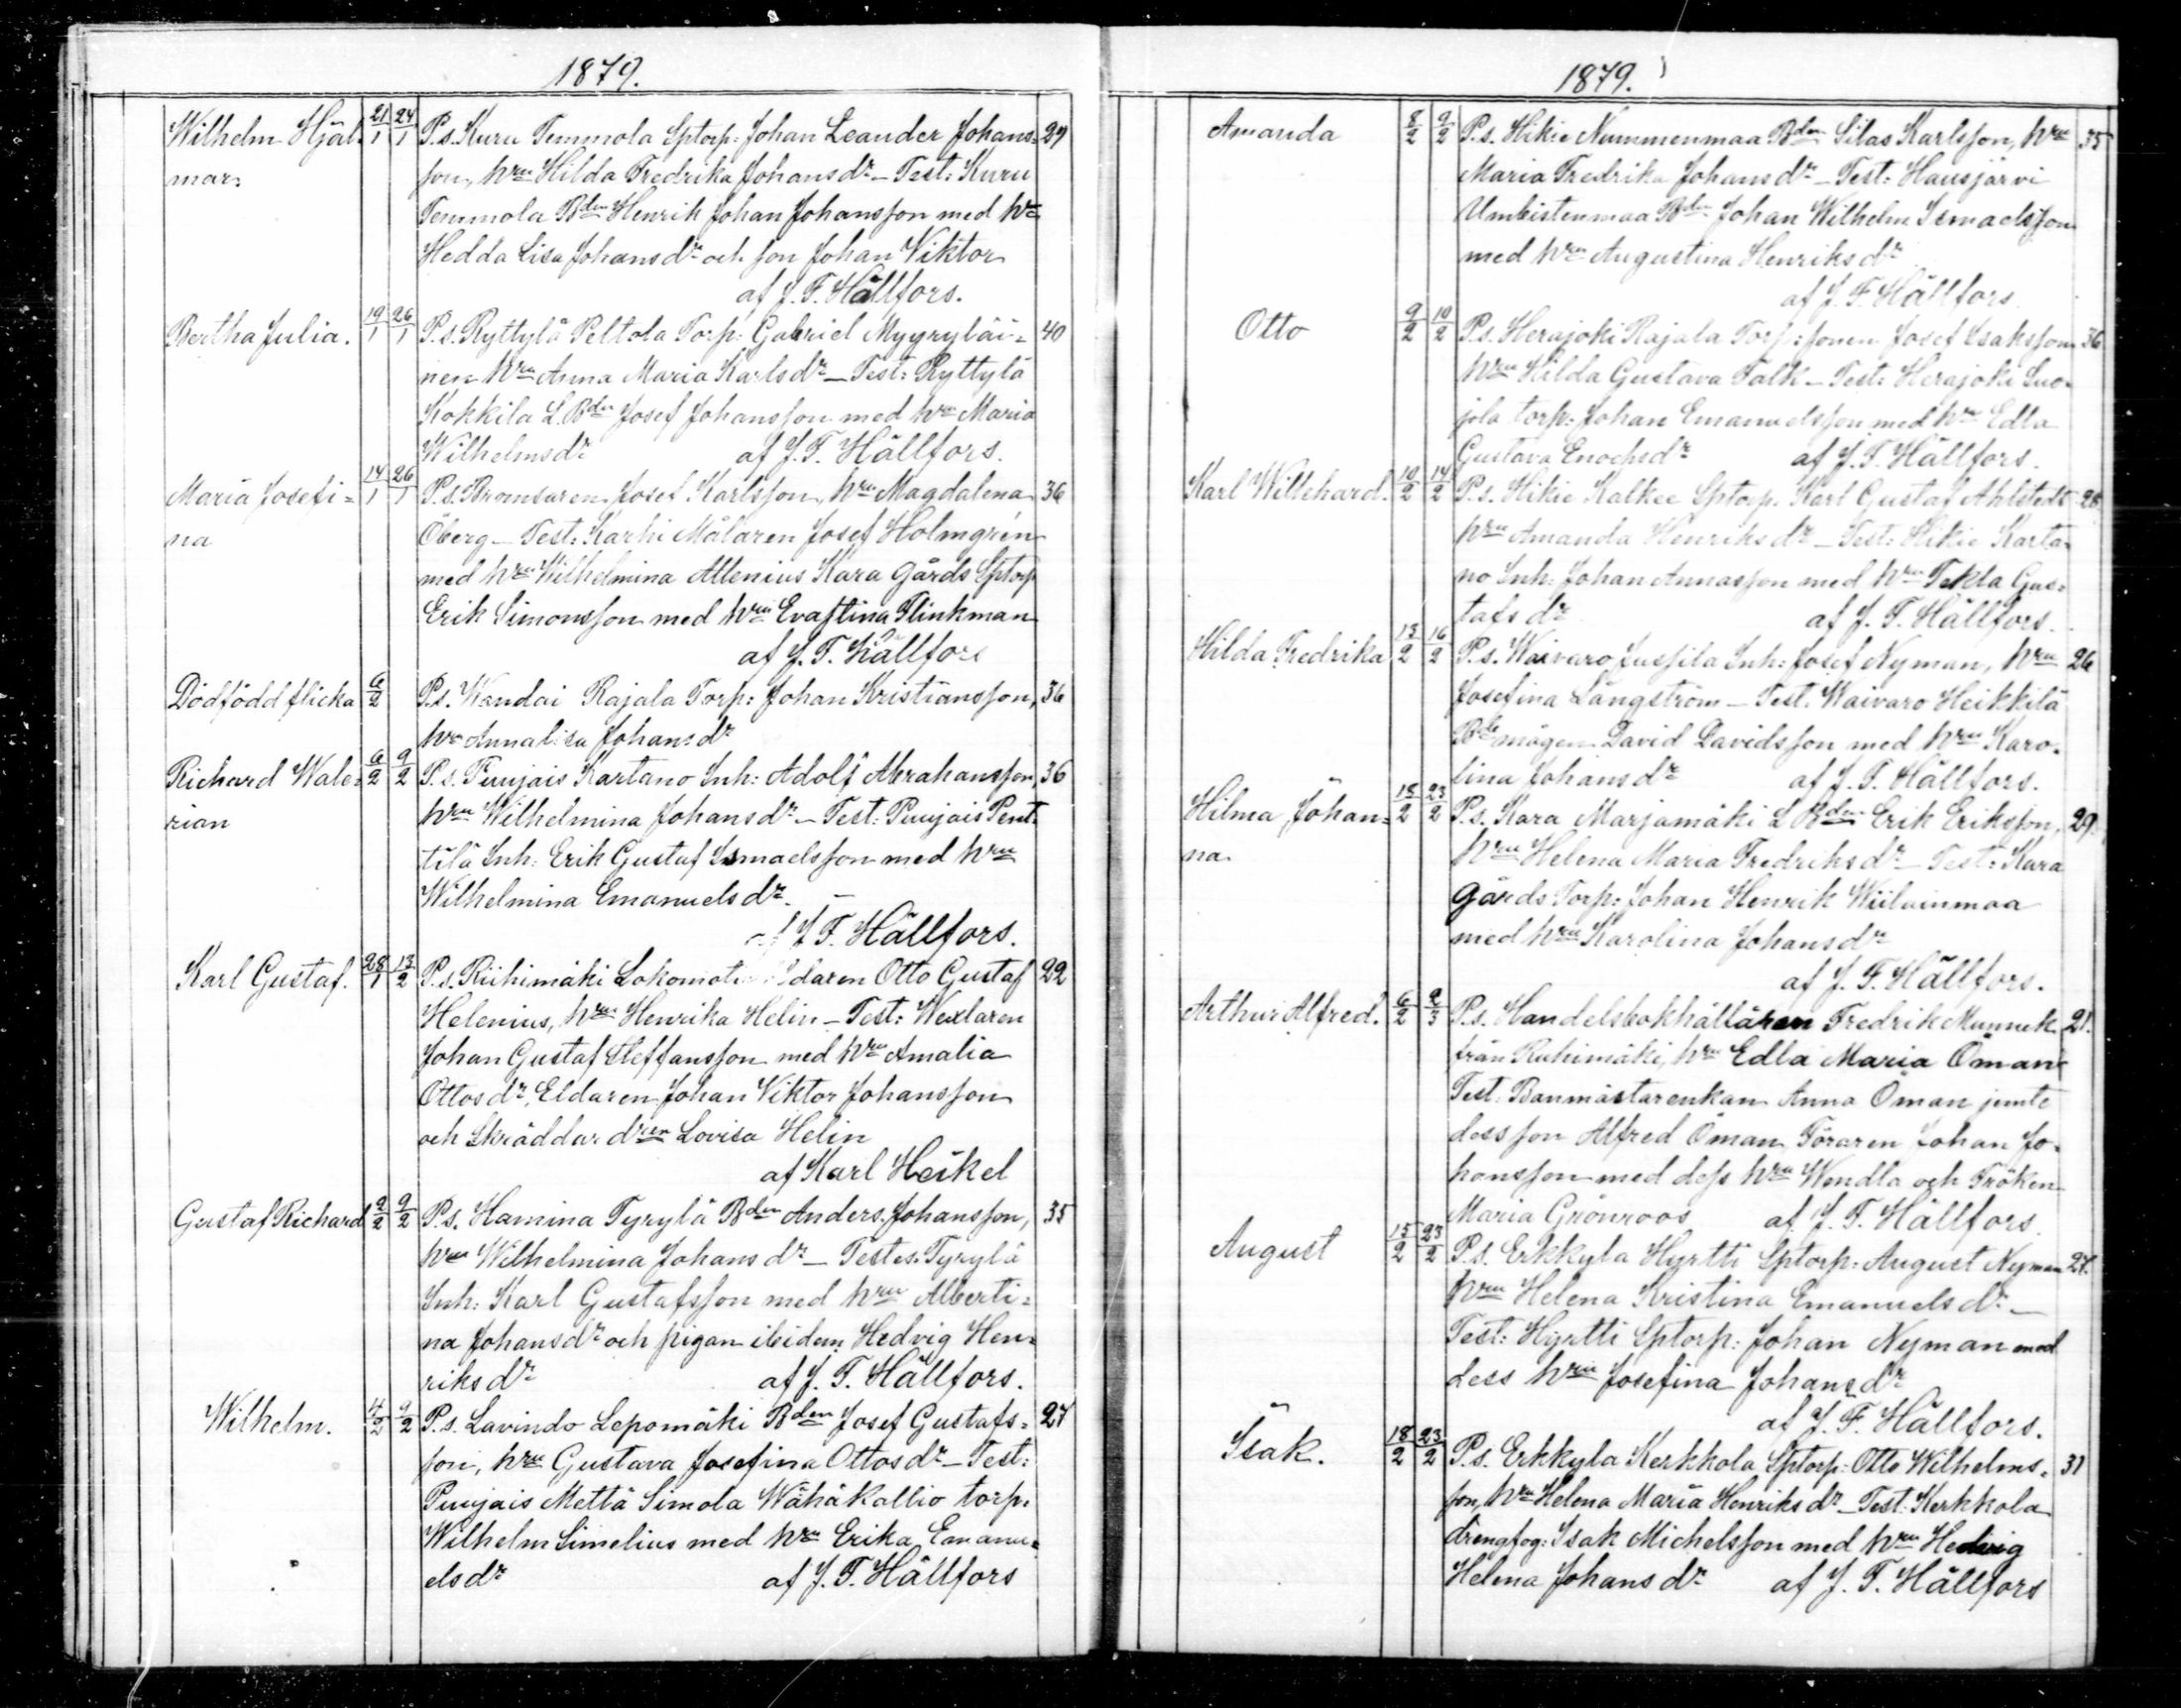 1879.
Wilhelm Hjäl- 21/1 24/1 P.s. Kuru Temmola Sptorp: Johan Leander Johans= 29
mar. son, hru Hilda Fredrika Johansdr – Test: Kuru
Temmola Bden Henrik Johan Johansson med hru
Hedda Lisa Johansdr och son Johan Viktor
af J. F. Hällfors.
Bertha Julia. 19/1 26/1 P.s. Ryttylä Peltola Torp: Gabriel Myyryläi= 40
nen hru Anna Maria Karlsdr – Test: Ryttylä
Kokkila L. Bden Josef Johansson med hru Maria
Wilhelmsdr af J. F. Hällfors.
Maria Josefi= 14/1 26/1 P.s. Bromsaren Josef Karlsson, hru Magdalena 36
na Öberg – Test: Karhi Målaren Josef Holmgrén
med hru Wilhelmina Allenius Kara gårds Sptorp
Erik Simonsson med hru Evastina Flinkman
af J. F. Hällfors
Dödfödd flicka 6/2 P.s. Wandai Rajala Torp: Johan Kristiansson, 36
hru Annalisa Johansdr
Richard Wale= 6/2 9/2 P.s. Puujais Kartano Inh: Adolf Abrahamsson, 36
rian hru Wilhelmina Johansdr – Test: Puujais Pent=
tilä Inh: Erik Gustaf Ismaelsson med hru
Wilhelmina Emanuelsdr. –
af J. F. Hällfors.
Karl Gustaf. 28/1 13/2 P.s. Riihimäki Otto Gustaf 22
Helenius, hru Henrika Helin – Test: Wexlaren
Johan Gustaf Steffansson med hru Amalia
Ottosdr, Eldaren Johan Viktor Johansson
och Skräddardren Lovisa Helin
af Karl Heikel
Gustaf Richard 2/2 9/2 P.s. Hamina Tyrylä Bden Anders Johansson, 35
hru Wilhelmina Johansdr – Testes: Tyrylä
Inh: Karl Gustafsson med hru Alberti=
na Johansdr och pigan ibidem Hedvig Hen=
riksdr af J. F. Hällfors.
Wilhelm. 4/2 9/2 P.s. Lavindo Lepomäki Bden Josef Gustafs= 27
son, hru Gustava Josefina Ottosdr – Test:
Puujais Mettä Simola Wähäkallio torp:
Wilhelm Simelius med hru Erika Emanu=
elsdr af J. F. Hällfors
1879.
Amanda 8/2 9/2 P.s. Hikie Nummenmaa Bden Silas Karlsson, hru 35
Maria Fredrika Johansdr – Test: Hausjärvi
Umbistenmaa Bden Johan Wilhelm Ismaelsson
med hru Augustina Henriksdr
af J. F. Hällfors
Otto 9/2 10/2 P.s. Herajoki Rajala Torp:sonen Josef Isaksson 36
hru Hilda Gustava Falk – Test: Herajoki Suo=
jola torp: Johan Emanuelsson med hru Edla
Gustava Enochsdr af J. F. Hällfors.
Karl Willehard. 10/2 14/2 P.s. Hikie Kalkee Sptorp. Karl Gustaf Ahlstedt 28
hru Amanda Henriksdr – Test: Hikie Karta=
no Inh: Johan Annasson med hru Tekla Gus=
tafsdr af J. F. Hällfors.
Hilda Fredrika 13/2 16/2 P.s. Waivaro Jussila Inh: Josef Nyman, hru 26
Josefina Långström – Test: Waivaro Heikkilä
Bde mågen David Davidsson med hru Karo=
lina Johansdr af J. F. Hällfors.
Hilma Johan= 18/2 23/2 P.s. Kara Marjamäki L Bden Erik Eriksson, 29.
na. hru Helena Maria Fredriksdr – Test: Kara
Gårds Torp: Johan Henrik Wiiluinmaa
med hru Karolina Johansdr
af J. F. Hällfors.
Arthur Alfred. 6/2 2/3 P.s. Handelsbokhållaren Fredrik Munnck 21.
från Riihimäki, hru Edla Maria Öman
Test: Banmästarenkan Anna Öman jemte
dess son Alfred Öman Föraren Johan Jo=
hansson med dess hru Wendla och Fröken
Maria Grönroos af J. F. Hällfors.
August 15/2 23/2 P.s. Erkkylä Hyrtti Sptorp: August Nyman 27.
hru Helena Kristina Emanuelsdr –
Test: Hyrtti Sptorp: Johan Nyman med
dess hru Josefina Johansdr
af J. F. Hällfors.
Isak. 18/2 23/2 P.s. Erkkyla Kerkkola Sptorp: Otto Wilhelms= 31
son, hru Helena Maria Henriksdr – Test: Kerkkola
drengfog: Isak Michelsson med hru Hedvig
Helena Johansdr af J. F. Hällfors